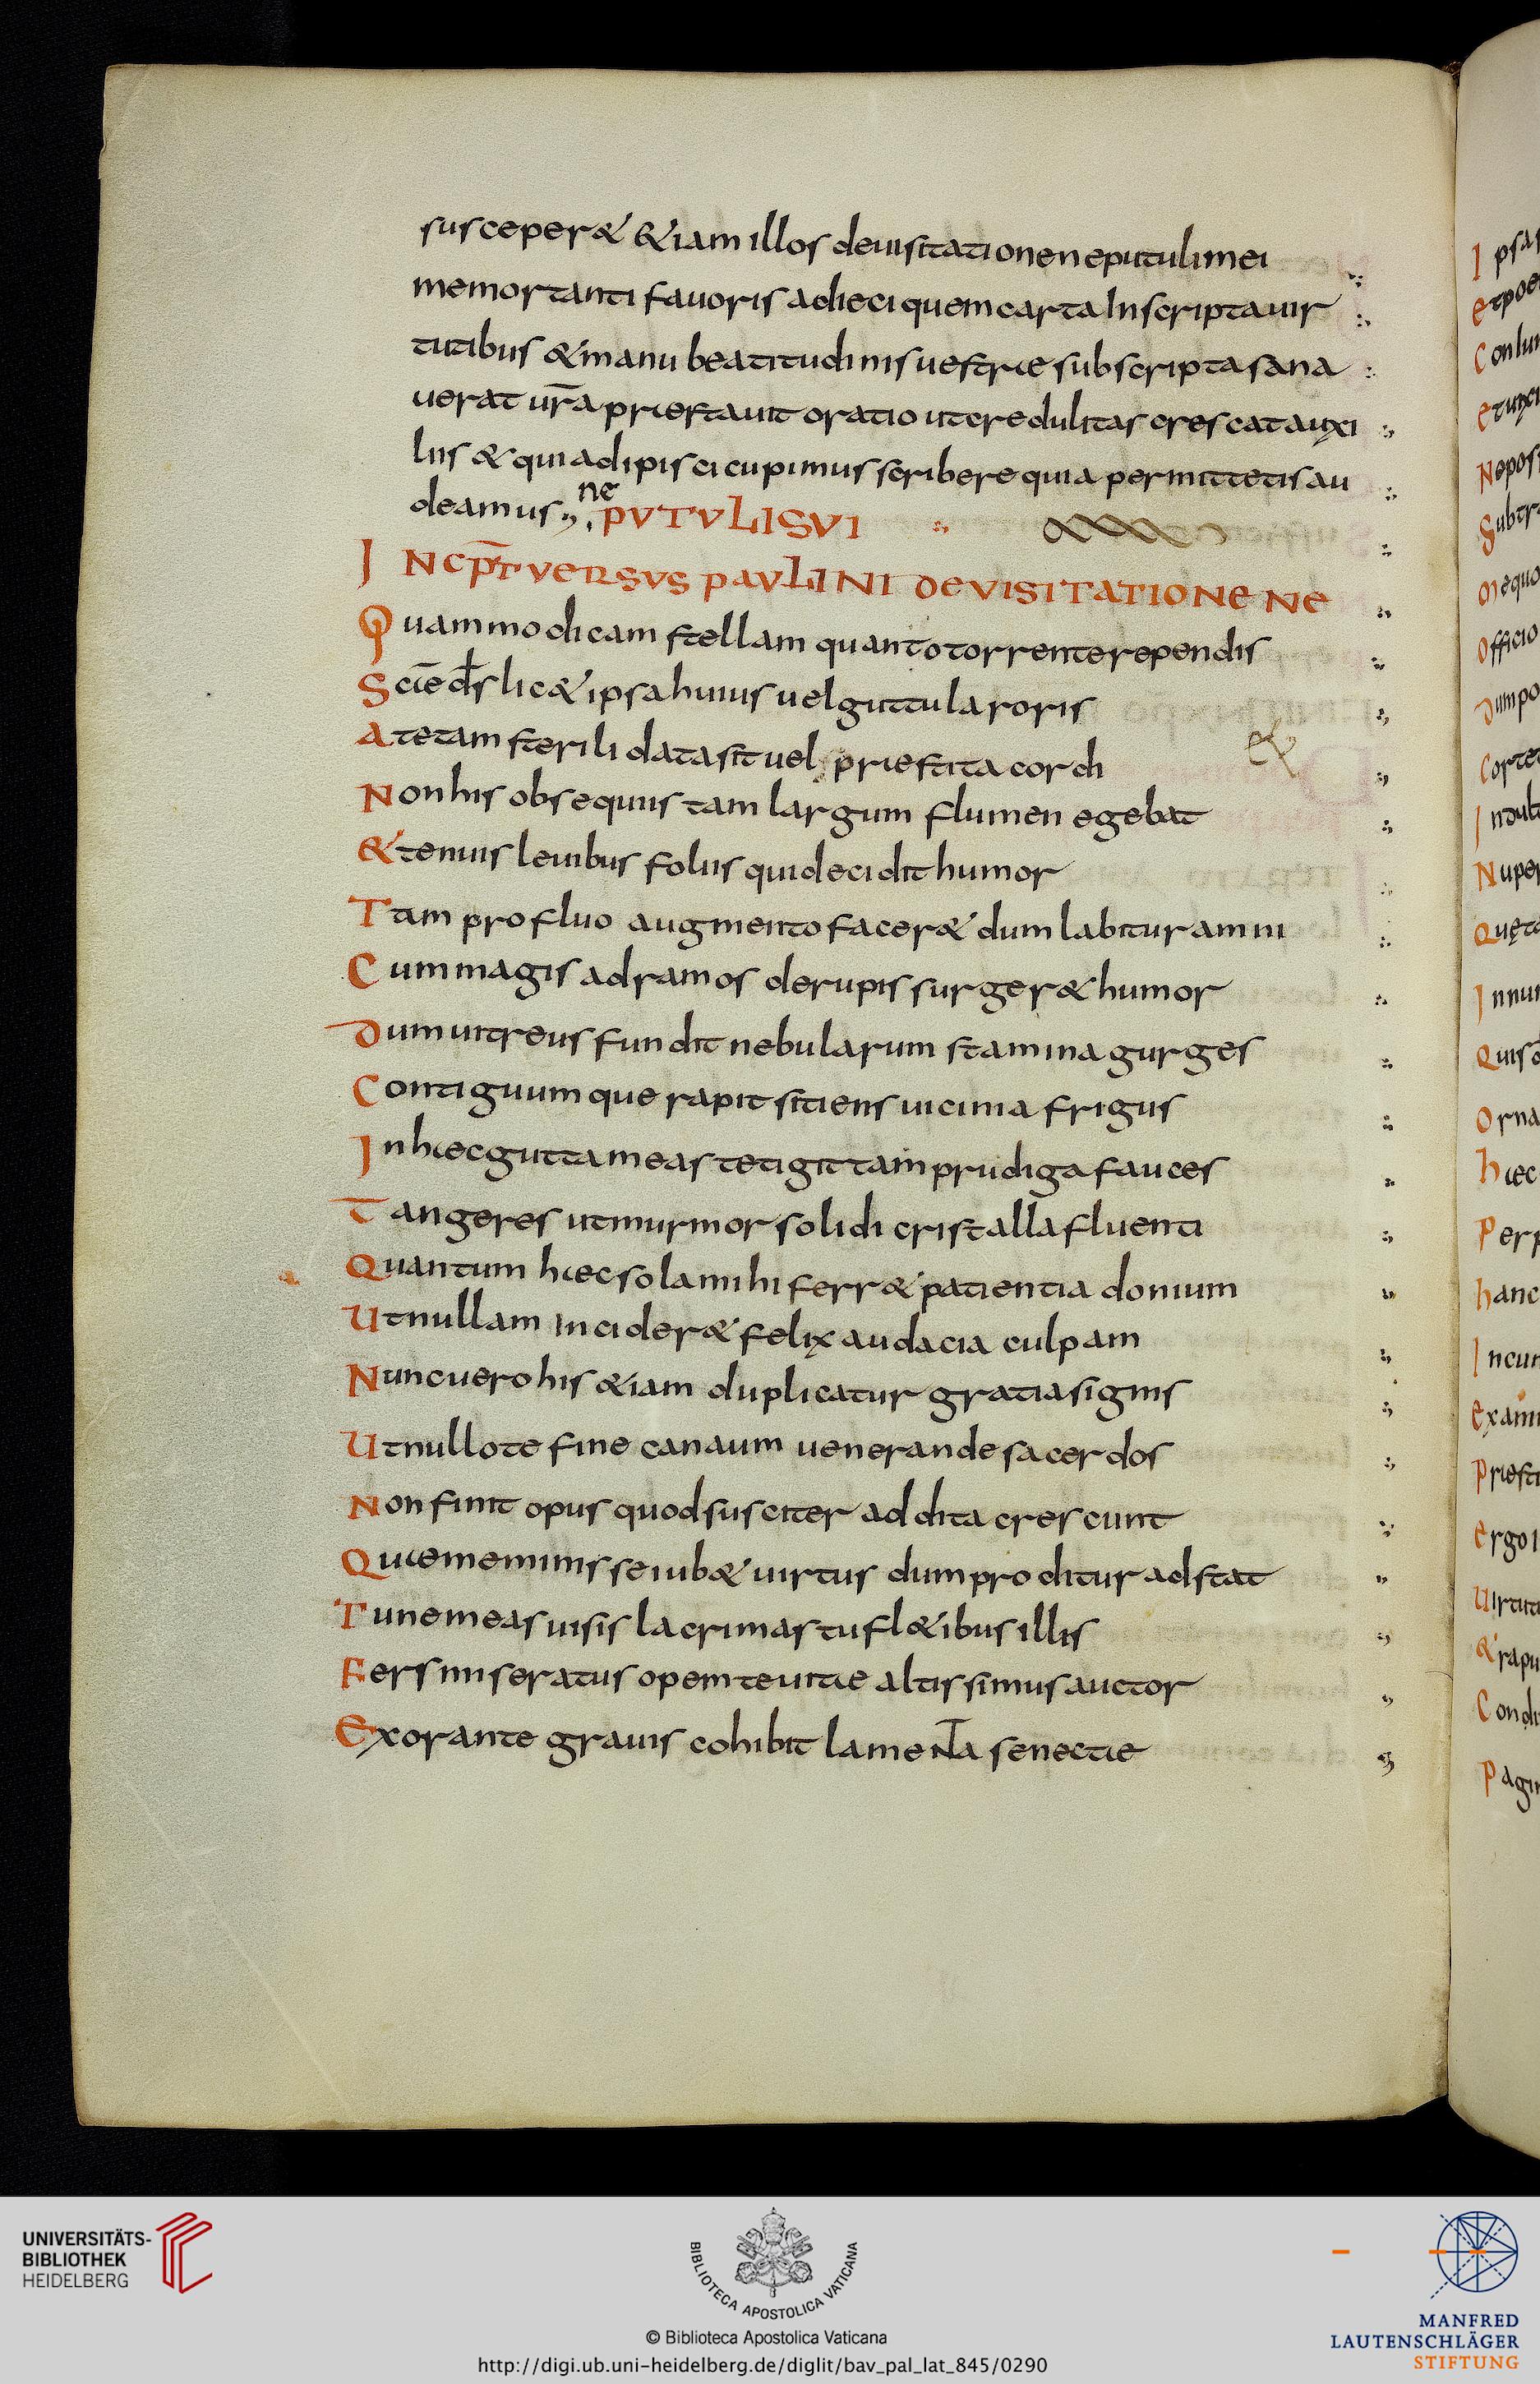 susceper& &iam illos deuisitationenepitulimei
memortanti fauoris adieci quem carta Inscripta uir
tutibus &manu beatitudinis uestrae subscripta sana
uerat ur̄a praestauit oratio utcredulitas crescat auxi
liis & qui adipisci cupimus scribere quia permittetis au
deamus ne PUTULI SUI
INCPT̄ VERSVS PAVLINI DE VISITATIONE NE
Quammodicam stellam quanto torrente rependis
Scīe ds̄ lic& ipsa huius uel guttula roris
Atetam sterili data sit uel praestita cordi
ex
Non his obsequiis tam largum flumen egebat
& tenuis leuibus foliis qui decidit humor
Tam profluo augmento facer& dum labitur amni
Cum magis adramos derupis surger& humor
Dum uitreus fundit nebularum stamina gurges
Contiguum que rapit sitiens uicinia frigus
In haec gutta meas tetigit tam prudiga fauces
Tangeres utmurmor solidi cristalla fluenti
Quantum haec sola mihi ferr& patientia donium
Utnullam Incider& felix audacia culpam
Nunc uero his &iam duplicatur gratia signis
Utnullote fine canaum uenerande sacerdos
Non finit opus quod susciter addita crescunt
Quae meminisse iub& uirtus dum proditur adstat
Tunc meas uisis lacrimas tu fl&ibus illis
Fers miseratus opem te uitae altissimus auctor
Exorante grauis cohibit lamenta senectae
Ipsa
etpoe
Conlu
etuxi
Neposi
Subtr
Mequo
Officio
Dumpo
Corte
Indult
Nuper
Quęta
Innu
Quis
Orna
haec
Perp
hanc
Incun
Exam
Praesti
Ergo i
Uirtuti
&rapu
Condi
Pagin
UNIVERSITÄTS-
BIBLIOTHEK
HEIDELBERG
BIBLIOTECA APOSTOLICA VATICANA
© Biblioteca Apostolica Vaticana
http://digi.ub.uni-heidelberg.de/diglit/bav_pal_lat_845/0290
MANFRED
LAUTENSCHLÄGER
STIFTUNG